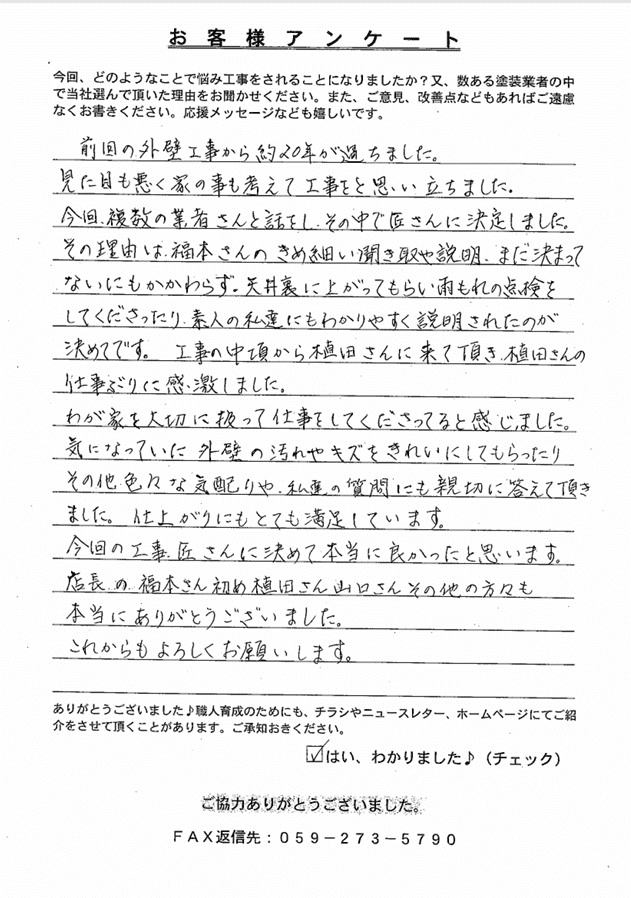 お客様アンケート
今回、どのようなことで悩み工事をされることになりましたか？又、数ある塗装業者の中
で当社選んで頂いた理由をお聞かせください。また、ご意見、改善点などもあればご遠慮
なくお書きください。応援メッセージなども嬉しいです。
前回の外壁工事から約20年が過ちました。
見た目も悪く家の事も考えて工事をと思い立ちました。
今回、複数の業者さんと話をし、その中で匠さんに決定しました。
その理由は、福本さんのきめ細い聞き取や説明、まだ決まって
ないにもかかわらず、天井裏に上がってもらい雨もれの点検を
してくださったり、素人の私達にもわかりやすく説明されたのが
決めてです。 工事の中頃から植田さんに来て頂き、植田さんの
仕事ぶりに感激しました。
わが家を大切に扱って仕事をしてくださってると感じました。
気になっていた外壁の汚れやキズをきれいにしてもらったり
その他、色々な気配りや、私達の質問にも親切に答えて頂き
ました。仕上がりにもとても満足しています。
今回の工事、匠さんに決めて本当に良かったと思います。
店長の福本さん初め植田さん山口さんその他の方々も
本当にありがとうございました。
これからもよろしくお願いします。
ありがとうございました♪職人育成のためにも、チラシやニュースレター、ホームページにてご紹
介をさせて頂くことがあります。ご承知おきください。
☑はい、わかりました♪（チェック）
ご協力ありがとうございました。
ＦＡＸ返信先：０５９－２７３－５７９０